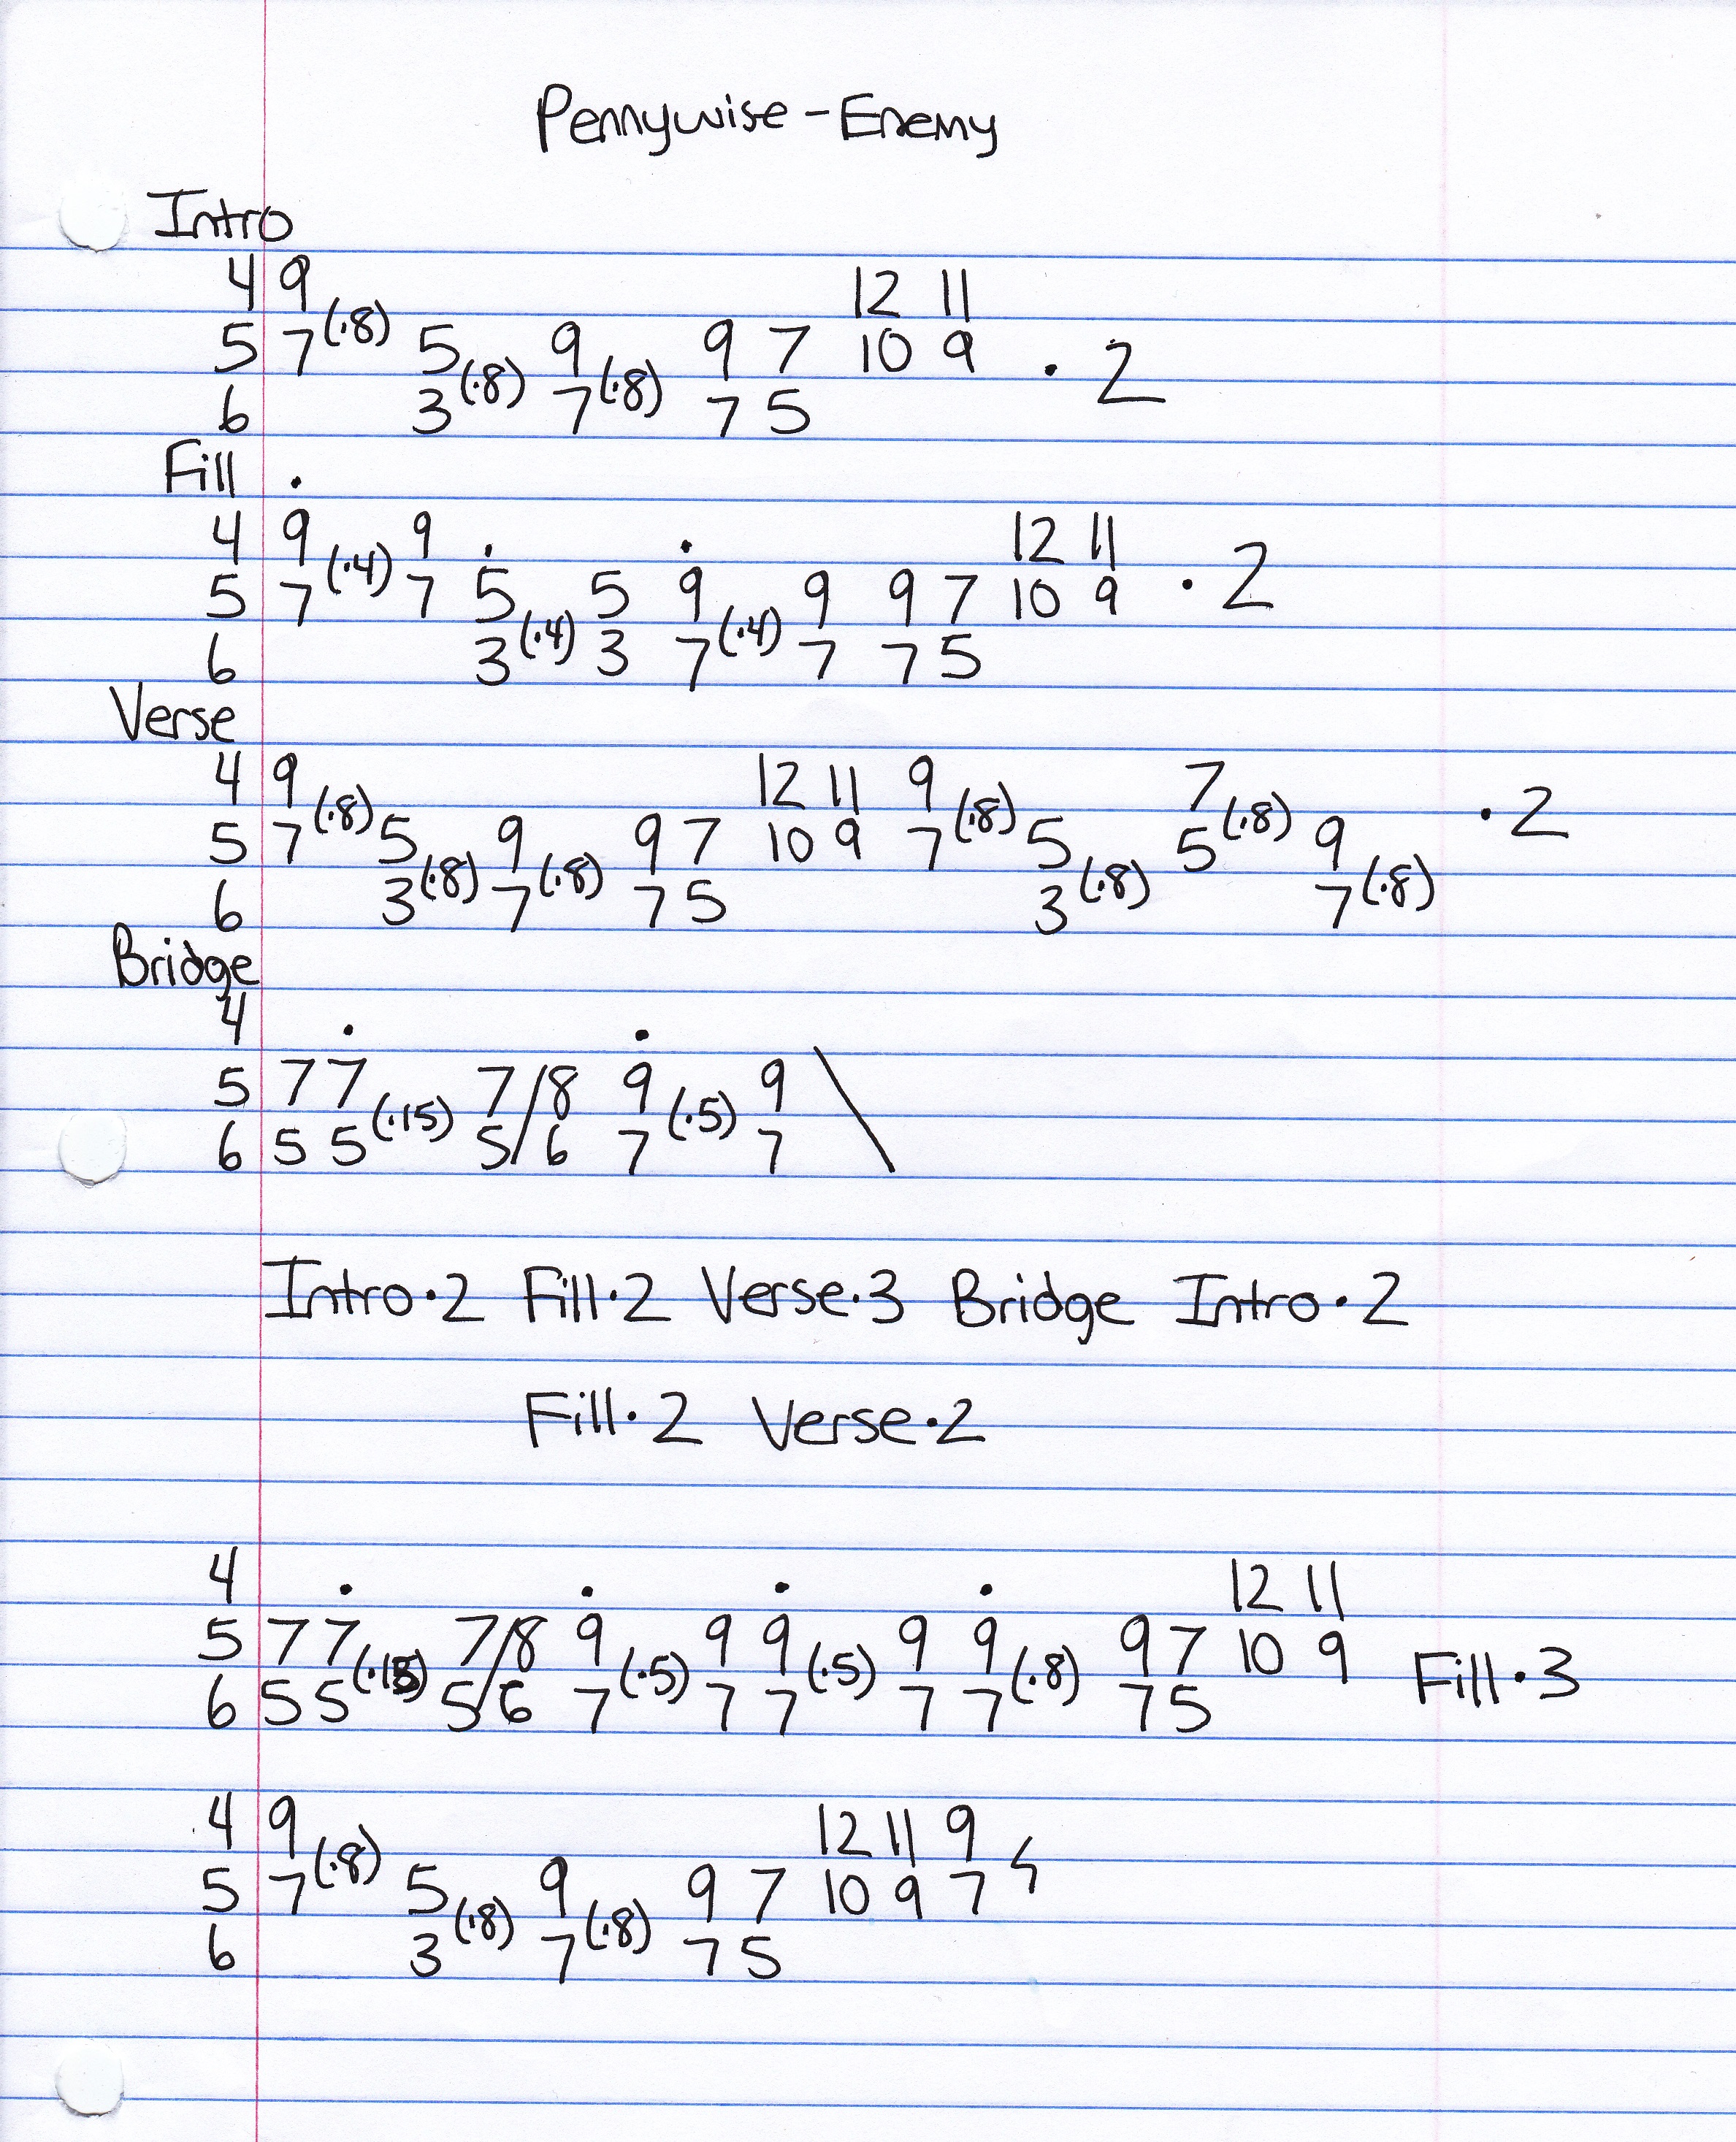 Pennywise - Enemy
Intro
4 9 12 11
5 7 (·8) 5 9 9 7 10 9 · 2
6 3 (·8) 7 (·8) 7 5
Fill ·
4 9 9 · · 12 11
5 7 (·4) 7 5 5 9 9 9 7 10 9 · 2
6 3 (·4) 3 7 (·4) 7 7 5
Verse
4 9 12 11 9 7
5 7 (·8) 5 9 9 7 10 9 7 (·8) 5 5 (·8) 9 · 2
6 3 (·8) 7 (·8) 7 5 3 (·8) 7 (·8)
Bridge
4 · ·
5 7 7 7 / 8 9 9 \
6 5 5 (·15) 5 / 6 7 (·5) 7
Intro · 2 Fill · 2 Verse · 3 Bridge Intro · 2
Fill · 2 Verse · 2
4 · · · · 12 11
5 7 7 7 / 8 9 9 9 9 9 9 7 10 9 Fill · 3
6 5 5 (·15) 5 / 6 7 (·5) 7 7 (·5) 7 7 (·8) 7 5
4 9 12 11 9
5 7 (·8) 5 9 9 7 10 9 7
6 3 (·8) 7 (·8) 7 5